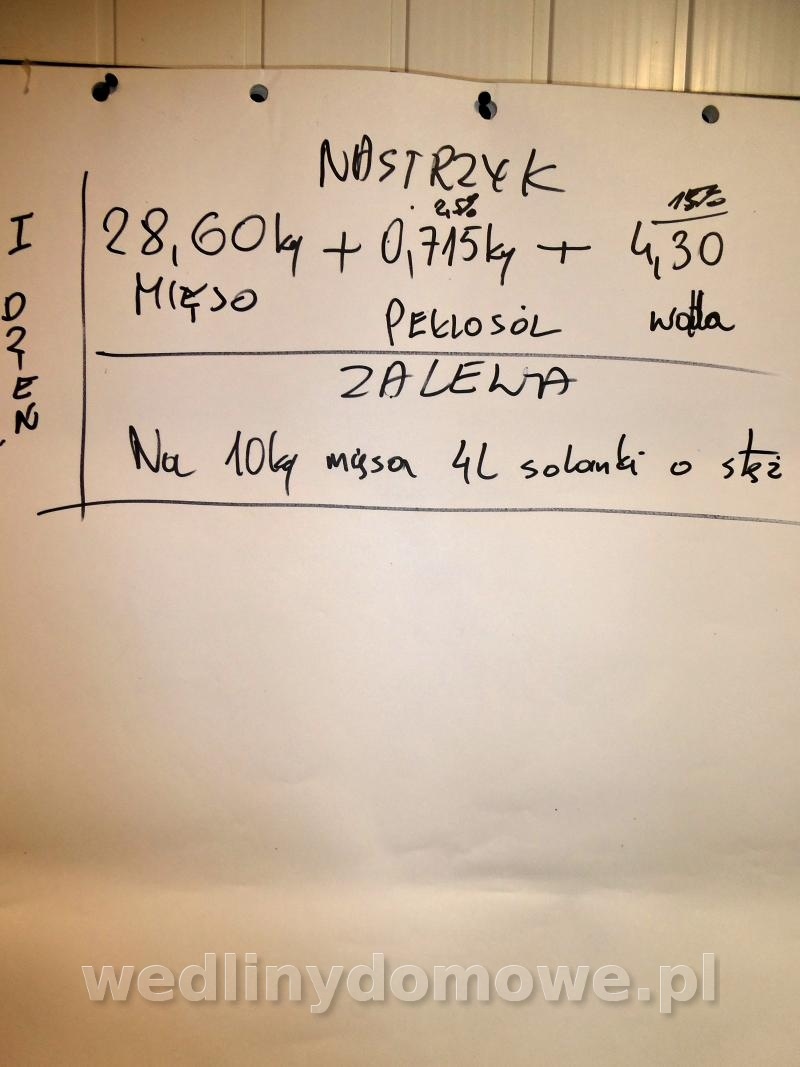 NASTRZYK
2,5% 15%
I DZIEŃ
28,60kg + 0,715kg + 4,30
MIĘSO PEKLOSÓL woda
ZALEWA
Na 10kg mięsa 4L solanki o stęż
wedlinydomowe.pl